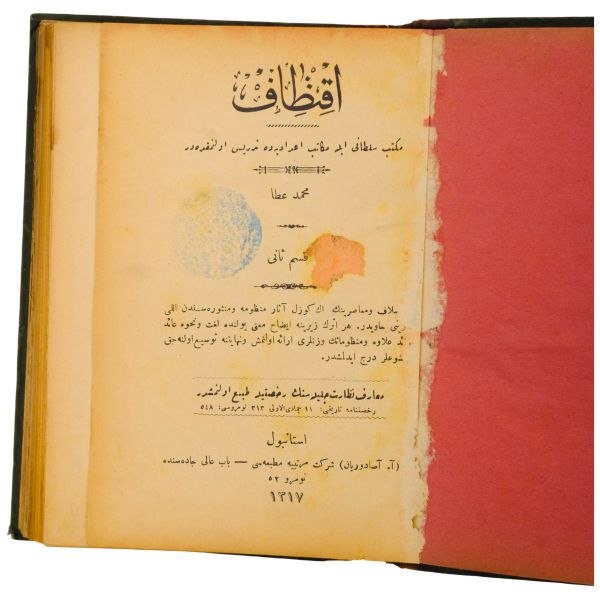 اقتطاف
مكتب سلطانی ایله مكاتب اعدادیه‌ده تدریس اولنمقده‌در
محمد عطا
قسم ثانی
سلاف و معاصرینك اك كوزل آثار منظومه و منثوره‌سندن اللی
حاویدر. هر اثرك زیرینه ایضاح معنی یولنده لغت و نحوه عائد
علاوه و منظوماتك وزنلری ارائه اولنمش ونهایتنه توسیع اوله‌جق
درج ایدلمشدر.
معارف نظارت جلیله‌سنك رخصتیله طبع اولنمشدر
رخصتنامه تاریخی: ١١ جمادی‌الاولی ٣١٣ نومروسی: ٥٤٨
استانبول
(آ. آصادوریان) شركت مرتبیه مطبعه‌سی — باب عالی جاده‌سنده
نومرو ٥٢
١٣١٧